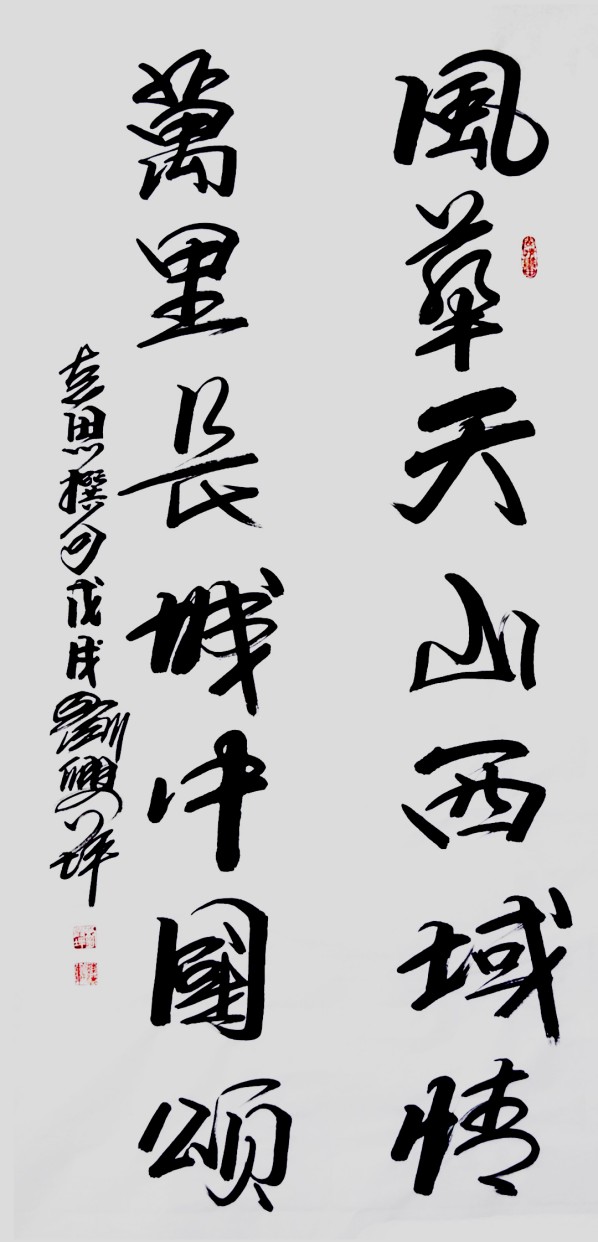 風華天山西域情
萬里長城中國颂
思撰句戊戌劉興